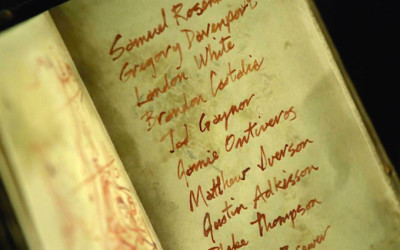 Samuel
Gregory Davenport
London White
Brandon Castalis
Jad Gaynor
Jamie Ontiveros
Matthew Iverson
Justin Adkisson
Blake Thompson